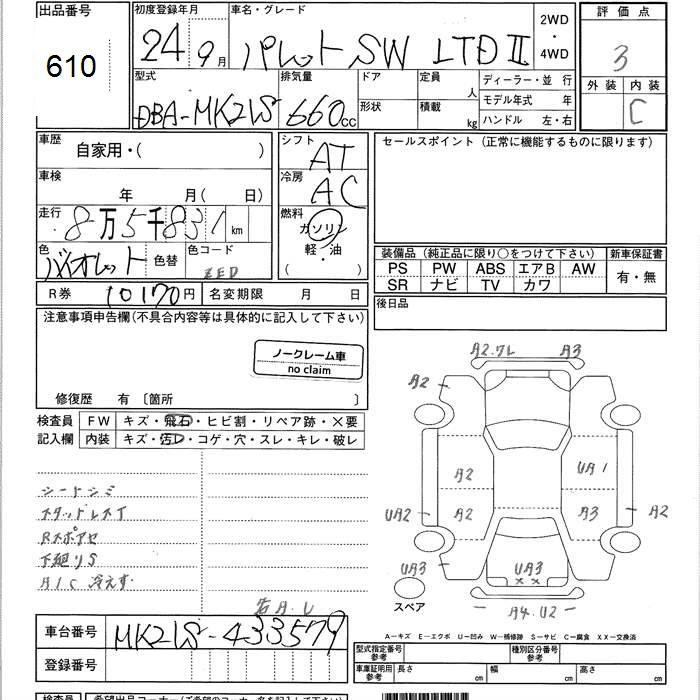 出品番号 初度登録年月 車名・グレード 2WD 評価点
610 24 9月 パレット SW LTD II ・ 3
4WD
型式 排気量 ドア 定員 人 ディーラー・並 行 外装 内装
モデル年式 年
DBA-MK21S 660cc 形状 積載 kg ハンドル 左・右 C
車歴 シフト セールスポイント(正常に機能するものに限ります)
自家用・( ) AT
車検 冷房
年 月(日) AC
走行 燃料
8万5千831km ガソリン
色 色コード 軽・油 装備品(純正品に限り○をつけて下さい) 新車保証書
バイオレット 色替 ZED ( ) PS PW ABS エアB AW 有・無
SR ナビ TV カワ
R券 10170円 名変期限 月 日 後日品
注意事項申告欄(不具合内容等は具体的に記入して下さい)
ノークレーム車
no claim
修復歴 有 〔箇所 〕
検査員 FW キズ・飛石・ヒビ割・リペア跡・×要
記入欄 内装 キズ・汚レ・コゲ・穴・スレ・キレ・破レ
シートシミ
R
下廻りS
A/C 冷えず
A2.ワレ A3
A2
A2 UA1
UA2 A2 A3 A2
UA3 UA3
××
スペア A4.U2
A-キズ E-エクボ U-凹み W-補修跡 S-サビ C-腐食 XX-交換済
車台番号 MK21S-433579
登録番号
型式指定番号 参考 種別区分番号 参考
車庫証明用 参考 長さ cm 幅 cm 高さ cm
検査員 希望出品コーナー(ご希望のコーナー名を記入